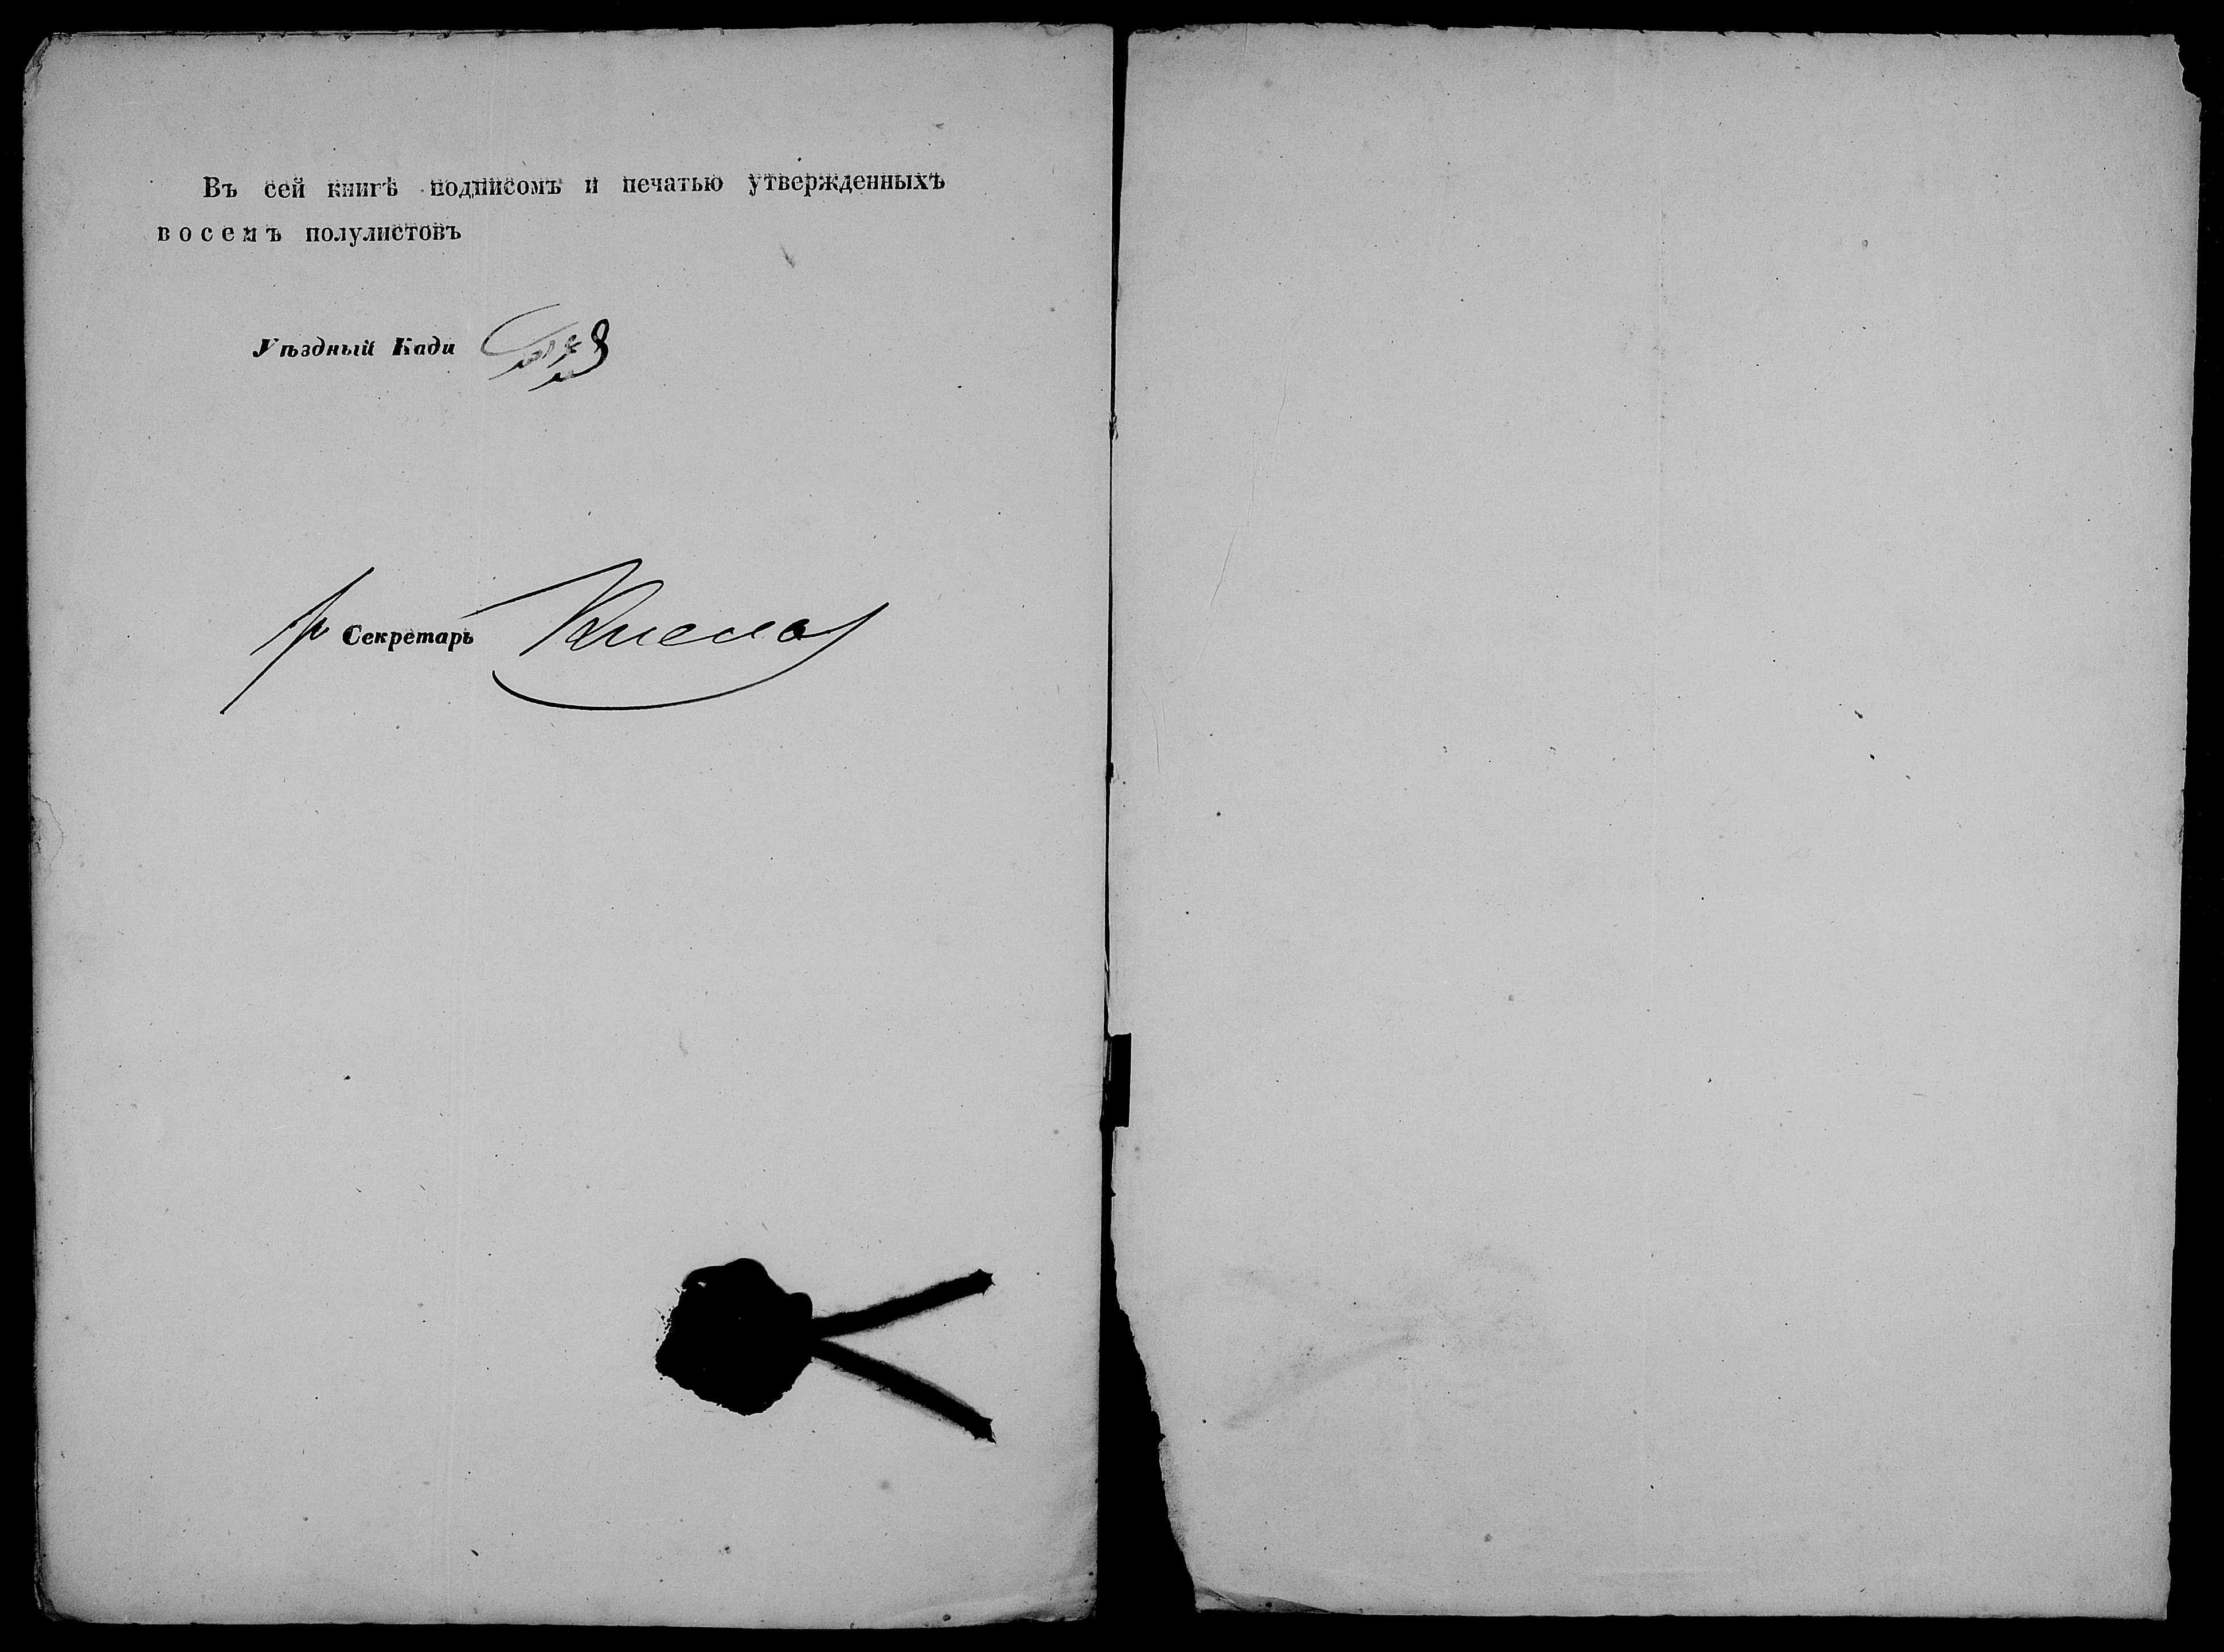 Въ сей книгѣ подписомъ и печатью утвержденныхъ
восемъ полулистовъ
Уѣздный Кади
Секретарь